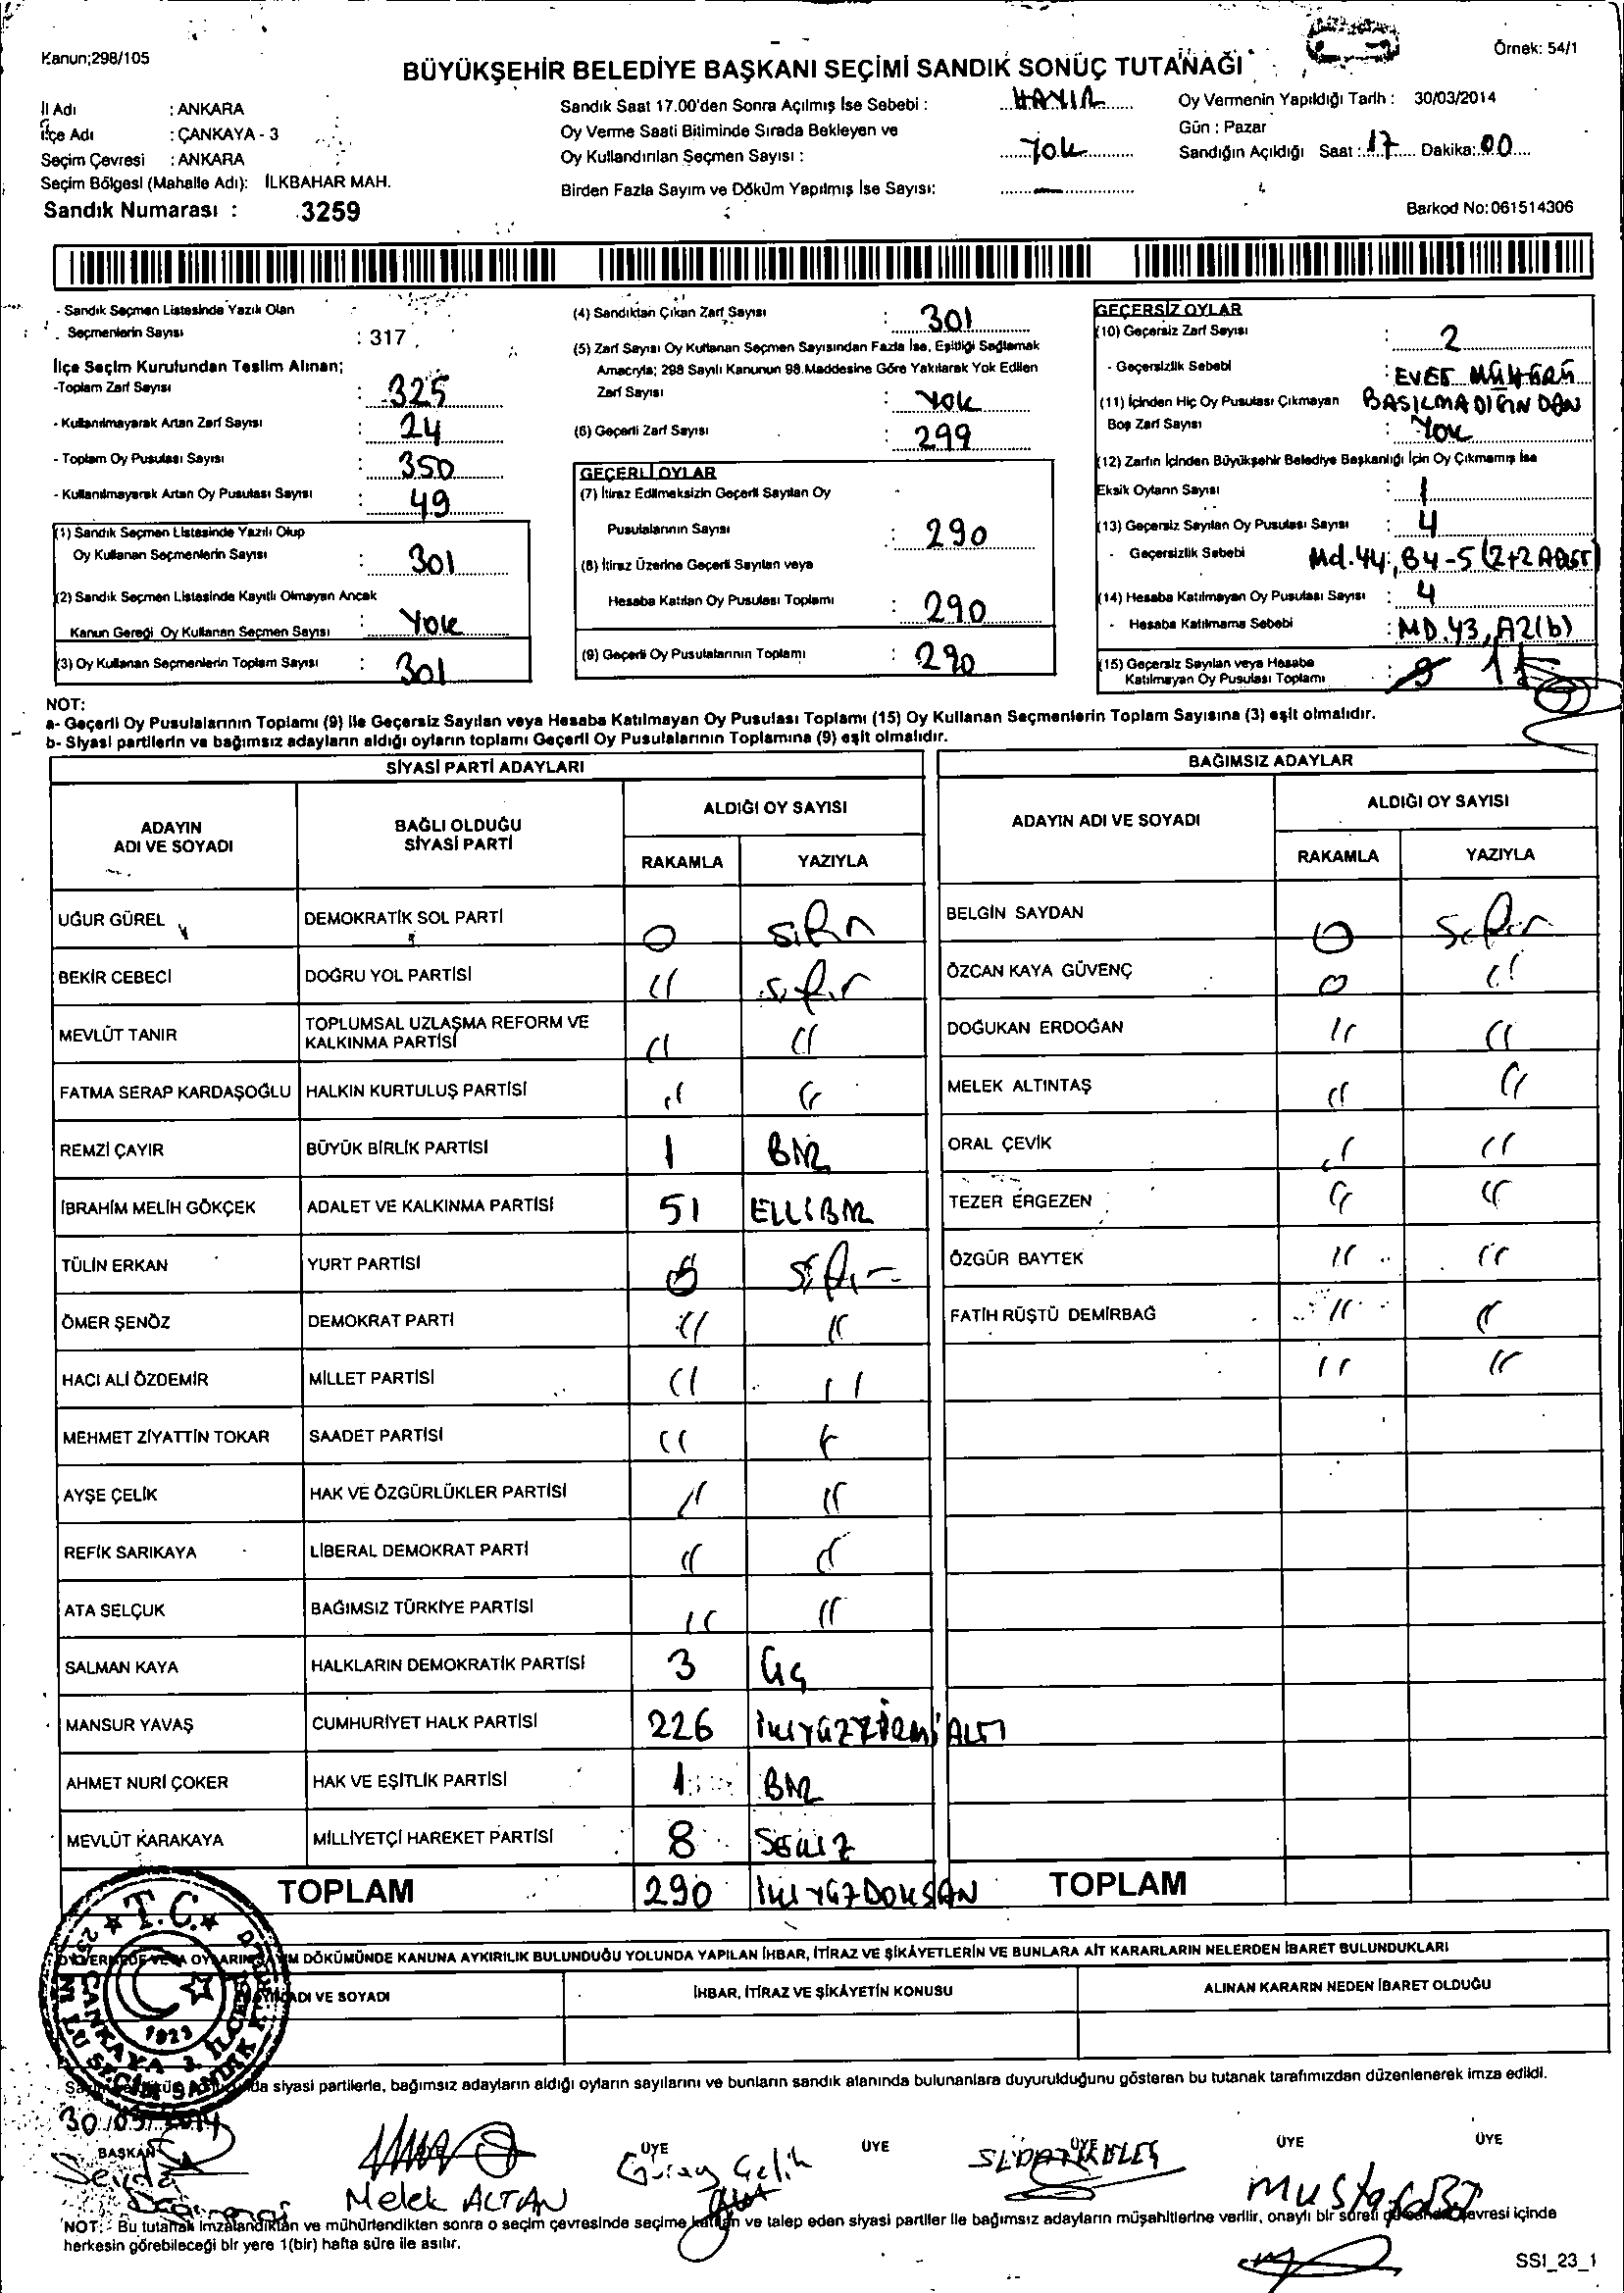 Kanun;298/105
Örnek: 54/1
BÜYÜKŞEHİR BELEDİYE BAŞKANI SEÇİMİ SANDIK SONUÇ TUTANAĞI
İl Adı : ANKARA
İlçe Adı : ÇANKAYA - 3
Seçim Çevresi : ANKARA
Seçim Bölgesi (Mahalle Adı): İLKBAHAR MAH.
Sandık Numarası : 3259
Sandık Saat 17.00'den Sonra Açılmış İse Sebebi : HAYIR
Oy Verme Saati Bitiminde Sırada Bekleyen ve
Oy Kullandırılan Seçmen Sayısı : Yok
Birden Fazla Sayım ve Döküm Yapılmış İse Sayısı: —
Oy Vermenin Yapıldığı Tarih : 30/03/2014
Gün : Pazar
Sandığın Açıldığı Saat : 17 Dakika: 00
Barkod No:061514306
- Sandık Seçmen Listesinde Yazılı Olan
Seçmenlerin Sayısı : 317
İlçe Seçim Kurulundan Teslim Alınan;
-Toplam Zarf Sayısı : 325
- Kullanılmayarak Artan Zarf Sayısı : 24
- Toplam Oy Pusulası Sayısı : 350
- Kullanılmayarak Artan Oy Pusulası Sayısı : 49
(1) Sandık Seçmen Listesinde Yazılı Olup
Oy Kullanan Seçmenlerin Sayısı : 301
(2) Sandık Seçmen Listesinde Kayıtlı Olmayan Ancak
Kanun Gereği Oy Kullanan Seçmen Sayısı : Yok
(3) Oy Kullanan Seçmenlerin Toplam Sayısı : 301
(4) Sandıktan Çıkan Zarf Sayısı : 301
(5) Zarf Sayısı Oy Kullanan Seçmen Sayısından Fazla İse, Eşitliği Sağlamak
Amacıyla; 298 Sayılı Kanunun 98.Maddesine Göre Yakılarak Yok Edilen
Zarf Sayısı : Yok
(6) Geçerli Zarf Sayısı : 299
GEÇERLİ OYLAR
(7) İtiraz Edilmeksizin Geçerli Sayılan Oy
Pusulalarının Sayısı : 290
(8) İtiraz Üzerine Geçerli Sayılan veya
Hesaba Katılan Oy Pusulası Toplamı : 290
(9) Geçerli Oy Pusulalarının Toplamı : 290
GEÇERSİZ OYLAR
(10) Geçersiz Zarf Sayısı : 2
- Geçersizlik Sebebi : EVET MÜHÜRÜ
BASILMADIĞINDAN
(11) İçinden Hiç Oy Pusulası Çıkmayan
Boş Zarf Sayısı : Yok
(12) Zarfın İçinden Büyükşehir Belediye Başkanlığı İçin Oy Çıkmamış İse
Eksik Oyların Sayısı : 1
(13) Geçersiz Sayılan Oy Pusulası Sayısı : 4
- Geçersizlik Sebebi Md.44, B4-5 (2+2 ADET)
(14) Hesaba Katılmayan Oy Pusulası Sayısı : 4
- Hesaba Katılmama Sebebi : MD.43, A2(b)
(15) Geçersiz Sayılan veya Hesaba
Katılmayan Oy Pusulası Toplamı 11
NOT:
a- Geçerli Oy Pusulalarının Toplamı (9) ile Geçersiz Sayılan veya Hesaba Katılmayan Oy Pusulası Toplamı (15) Oy Kullanan Seçmenlerin Toplam Sayısına (3) eşit olmalıdır.
b- Siyasi partilerin ve bağımsız adayların aldığı oyların toplamı Geçerli Oy Pusulalarının Toplamına (9) eşit olmalıdır.
SİYASİ PARTİ ADAYLARI
ADAYIN
ADI VE SOYADI
BAĞLI OLDUĞU
SİYASİ PARTİ
ALDIĞI OY SAYISI
RAKAMLA YAZIYLA
UĞUR GÜREL DEMOKRATİK SOL PARTİ 0 sıfır
BEKİR CEBECİ DOĞRU YOL PARTİSİ " sıfır
MEVLÜT TANIR TOPLUMSAL UZLAŞMA REFORM VE
KALKINMA PARTİSİ " "
FATMA SERAP KARDAŞOĞLU HALKIN KURTULUŞ PARTİSİ " "
REMZİ ÇAYIR BÜYÜK BİRLİK PARTİSİ 1 BİR
İBRAHİM MELİH GÖKÇEK ADALET VE KALKINMA PARTİSİ 51 ELLİBİR
TÜLİN ERKAN YURT PARTİSİ 0 sıfır
ÖMER ŞENÖZ DEMOKRAT PARTİ " "
HACI ALİ ÖZDEMİR MİLLET PARTİSİ " "
MEHMET ZİYATTİN TOKAR SAADET PARTİSİ " "
AYŞE ÇELİK HAK VE ÖZGÜRLÜKLER PARTİSİ " "
REFİK SARIKAYA LİBERAL DEMOKRAT PARTİ " "
ATA SELÇUK BAĞIMSIZ TÜRKİYE PARTİSİ " "
SALMAN KAYA HALKLARIN DEMOKRATİK PARTİSİ 3 ÜÇ
MANSUR YAVAŞ CUMHURİYET HALK PARTİSİ 226 İKİYÜZYİRMİALTI
AHMET NURİ ÇOKER HAK VE EŞİTLİK PARTİSİ 1 BİR
MEVLÜT KARAKAYA MİLLİYETÇİ HAREKET PARTİSİ 8 SEKİZ
TOPLAM 290 İKİYÜZDOKSAN
BAĞIMSIZ ADAYLAR
ADAYIN ADI VE SOYADI
ALDIĞI OY SAYISI
RAKAMLA YAZIYLA
BELGİN SAYDAN 0 Sıfır
ÖZCAN KAYA GÜVENÇ 0 "
DOĞUKAN ERDOĞAN " "
MELEK ALTINTAŞ " "
ORAL ÇEVİK " "
TEZER ERGEZEN " "
ÖZGÜR BAYTEK " "
FATİH RÜŞTÜ DEMİRBAĞ " "
" "
TOPLAM
DÖKÜMÜNDE KANUNA AYKIRILIK BULUNDUĞU YOLUNDA YAPILAN İHBAR, İTİRAZ VE ŞİKÂYETLERİN VE BUNLARA AİT KARARLARIN NELERDEN İBARET BULUNDUKLARI
ADI VE SOYADI
İHBAR, İTİRAZ VE ŞİKÂYETİN KONUSU
ALINAN KARARIN NEDEN İBARET OLDUĞU
T.C.
1923
ÇANKAYA 3. İLÇE
siyasi partilerle, bağımsız adayların aldığı oyların sayılarını ve bunların sandık alanında bulunanlara duyurulduğunu gösteren bu tutanak tarafımızdan düzenlenerek imza edildi.
30/03/2014
BAŞKAN ÜYE ÜYE ÜYE ÜYE ÜYE
Seyda
Melek ALTAN
Güray Çelik
Mustafa
NOT: - Bu tutanak imzalandıktan ve mühürlendikten sonra o seçim çevresinde seçime katılan ve talep eden siyasi partiler ile bağımsız adayların müşahitlerine verilir, onaylı bir sureti çevresi içinde
herkesin görebileceği bir yere 1(bir) hafta süre ile asılır.
SSI_23_1